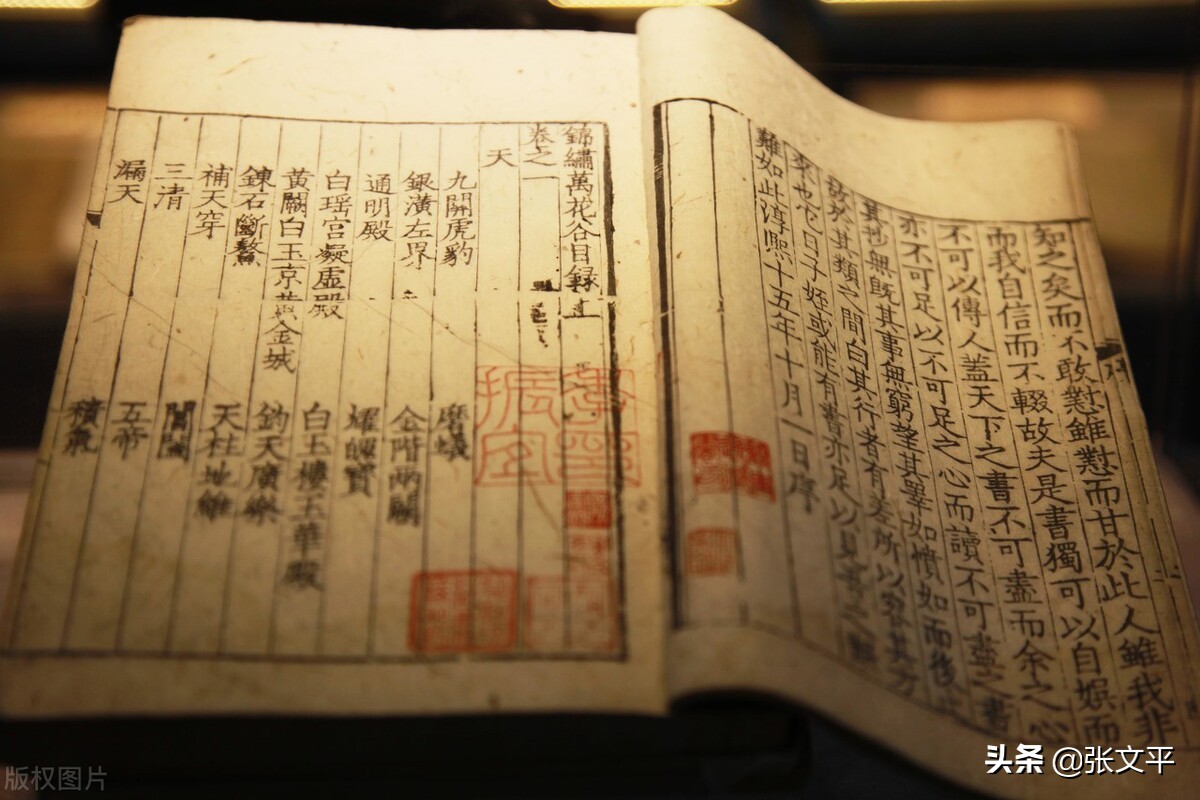 知之矣而不敢懟雖懟而甘於此人雖我非
而我自信而不輟故夫是書獨可以自娛而
不可以傳人蓋天下之書不可盡而余之心
亦不可足以不可足之心而讀不可盡之書
其抄無既其事無窮望其畢如債如而後
故於其類之間白其行者有差所以容其方
來也它日子姪或能有書亦足以見書之
難如此淳熙十五年十月一日序
錦繡萬花谷目録
卷之一
天
九關虎豹 磨蟻
銀潢左界 金階兩闕
通明殿 燿魄寶
白瑶宫凝虛殿 白玉樓玉華殿
黃闕白玉京黃金城 鈞天廣樂
鍊石斷鰲 天柱地維
補天穿 閶闔
三清 五帝
漏天 積氣
振宜
版权图片
头条 @张文平